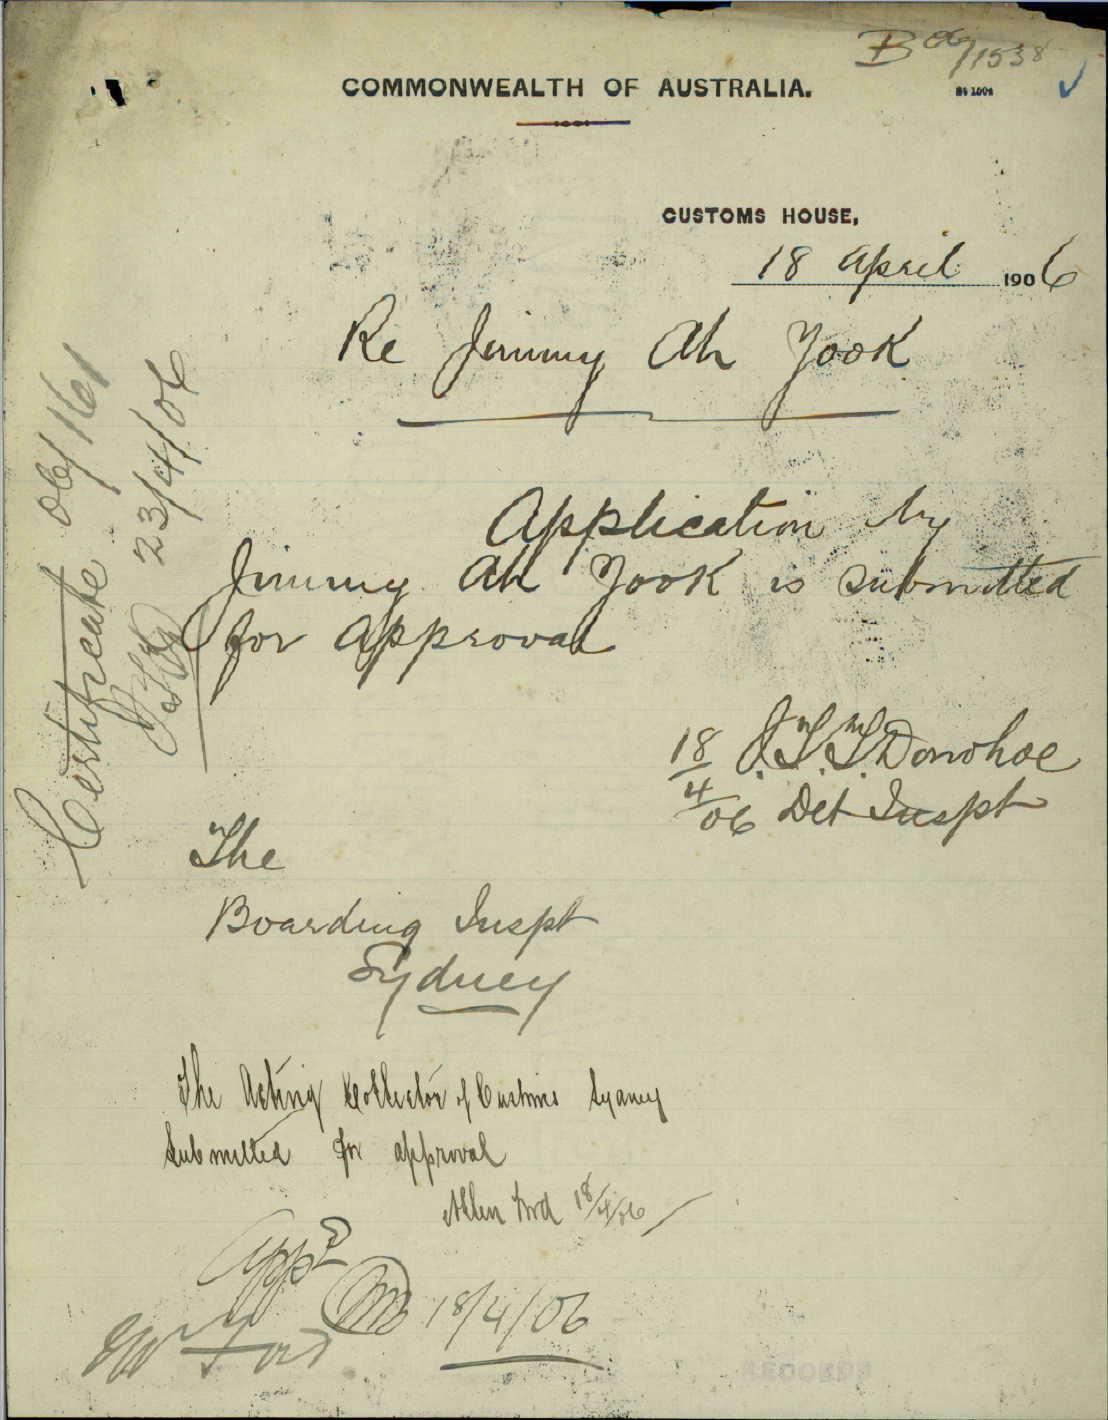 B 06/1538
COMMONWEALTH OF AUSTRALIA.
CUSTOMS HOUSE,
18 April 1906
Re Jimmy Ah Yook
Application by
Jimmy Ah Yook is submitted
for approval
18/4/06 J.T.T. Donohoe
Det Inspt
The
Boarding Inspt
Sydney
The Acting Collector of Customs Sydney
Submitted for approval
Allen Ford 18/4/06
Appd
18/4/06
Mr Ford
Certificate 06/161
23/4/06